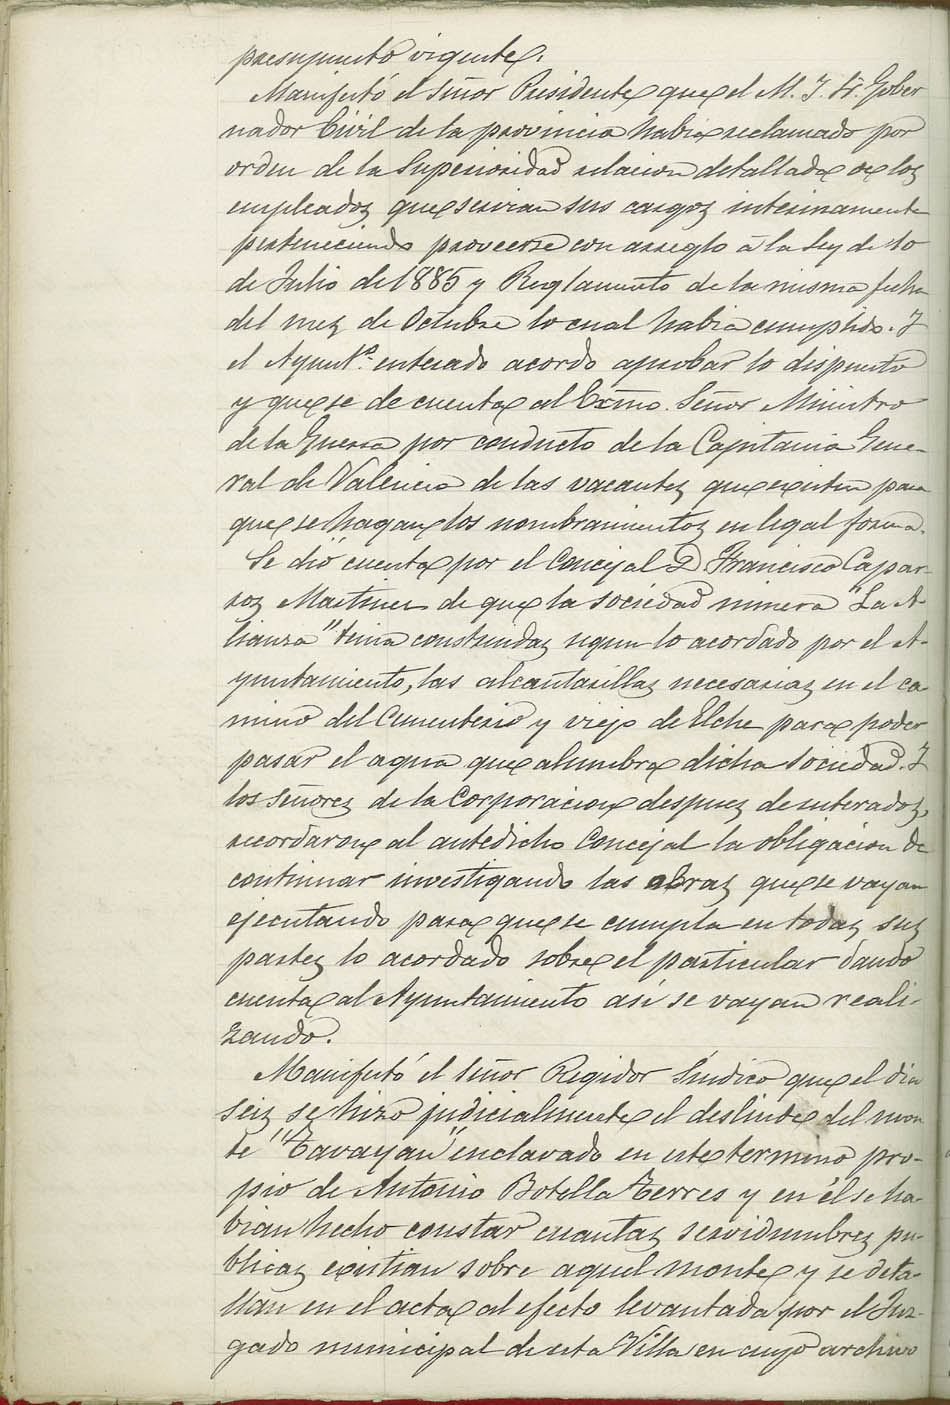 presupuesto vigente.
Manifestó el Señor Presidente que el M. I. Sr. Gober
nador Civil de la provincia habia reclamado por
orden de la Superioridad relacion detallada de los
empleados que servian sus cargos interinamente
perteneciendo proveerse con arreglo á la Ley de 10
de Julio de 1885 y Reglamento de la misma fecha
del mes de Octubre lo cual habia cumplido. Y
el Ayunt.º enterado acordo aprobar lo dispuesto
y que se de cuenta al Exmo. Señor Ministro
de la Guerra por conducto de la Capitania Gene-
ral de Valencia de las vacantes que existen para
que se hagan los nombramientos en legal forma.
Se dió cuenta por el Concejal D. Francisco Capar-
ros Martinez de que la sociedad minera "La A-
lianza" tenia construidas segun lo acordado por el A-
yuntamiento, las alcantarillas necesarias en el ca
mino del Cementerio y viejo de Elche para poder
pasar el agua que alumbra dicha Sociedad. Y
los Señores de la Corporacion despues de enterados,
recordaron al antedicho Concejal la obligacion de
continuar investigando las obras que se vayan
ejecutando para que se cumpla en todas sus
partes lo acordado sobre el particular dando
cuenta al Ayuntamiento así se vayan reali-
zando.
Manifestó el Señor Regidor Síndico que el dia
seis se hizo judicialmente el deslinde del mon
te "Tavayan" enclavado en este termino pro-
pio de Antonio Botella Terres y en él se ha-
bian hecho constar cuantas servidumbres pu-
blicas existian sobre aquel monte y se deta-
llan en el acta al efecto levantada por el Juz-
gado municipal de esta Villa en cuyo archivo